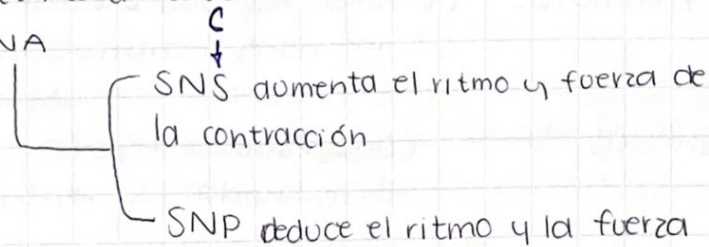 C
NA
SNS aumenta el ritmo y fuerza de
la contracción
SNP deduce el ritmo y la fuerza